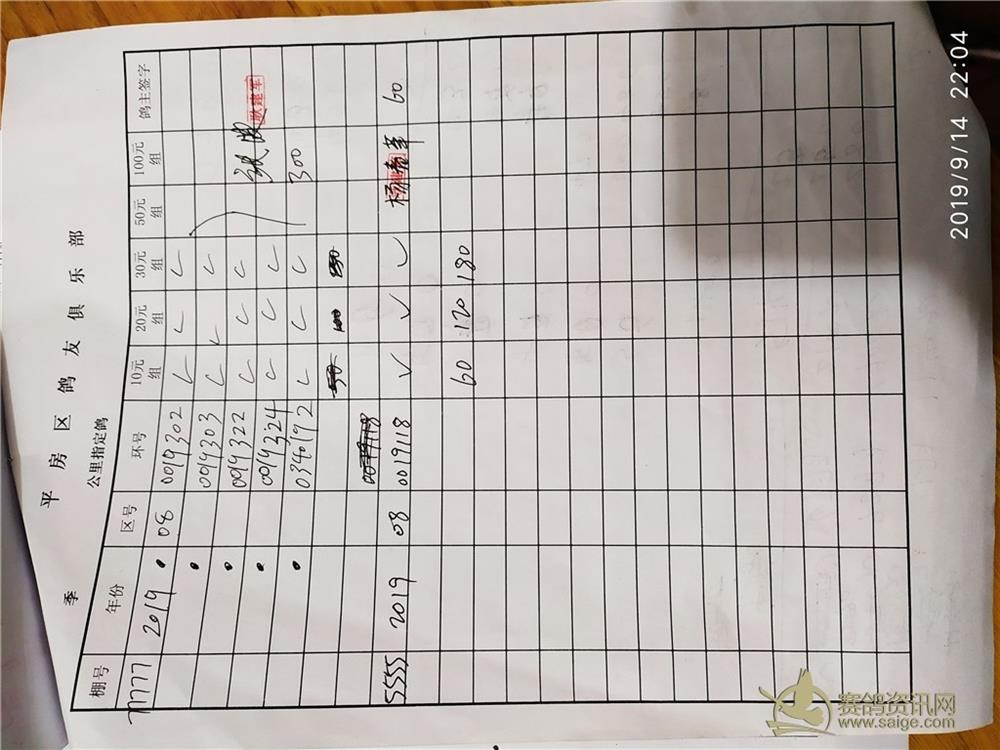 季 平房区鸽友俱乐部
公里指定鸽
棚号 年份 区号 环号 10元组 20元组 30元组 50元组 100元组 鸽主签字
77777 2019 08 0019302 ✓ ✓ ✓
0019303 ✓ ✓ ✓
0019322 ✓ ✓ ✓
0019324 ✓ ✓ ✓ 耿建军
0340192 ✓ ✓ ✓ 300
5555 2019 08 0019118 ✓ ✓ ✓ 60
60 120 180
2019/9/14 22:04
赛鸽资讯网
www.saige.com